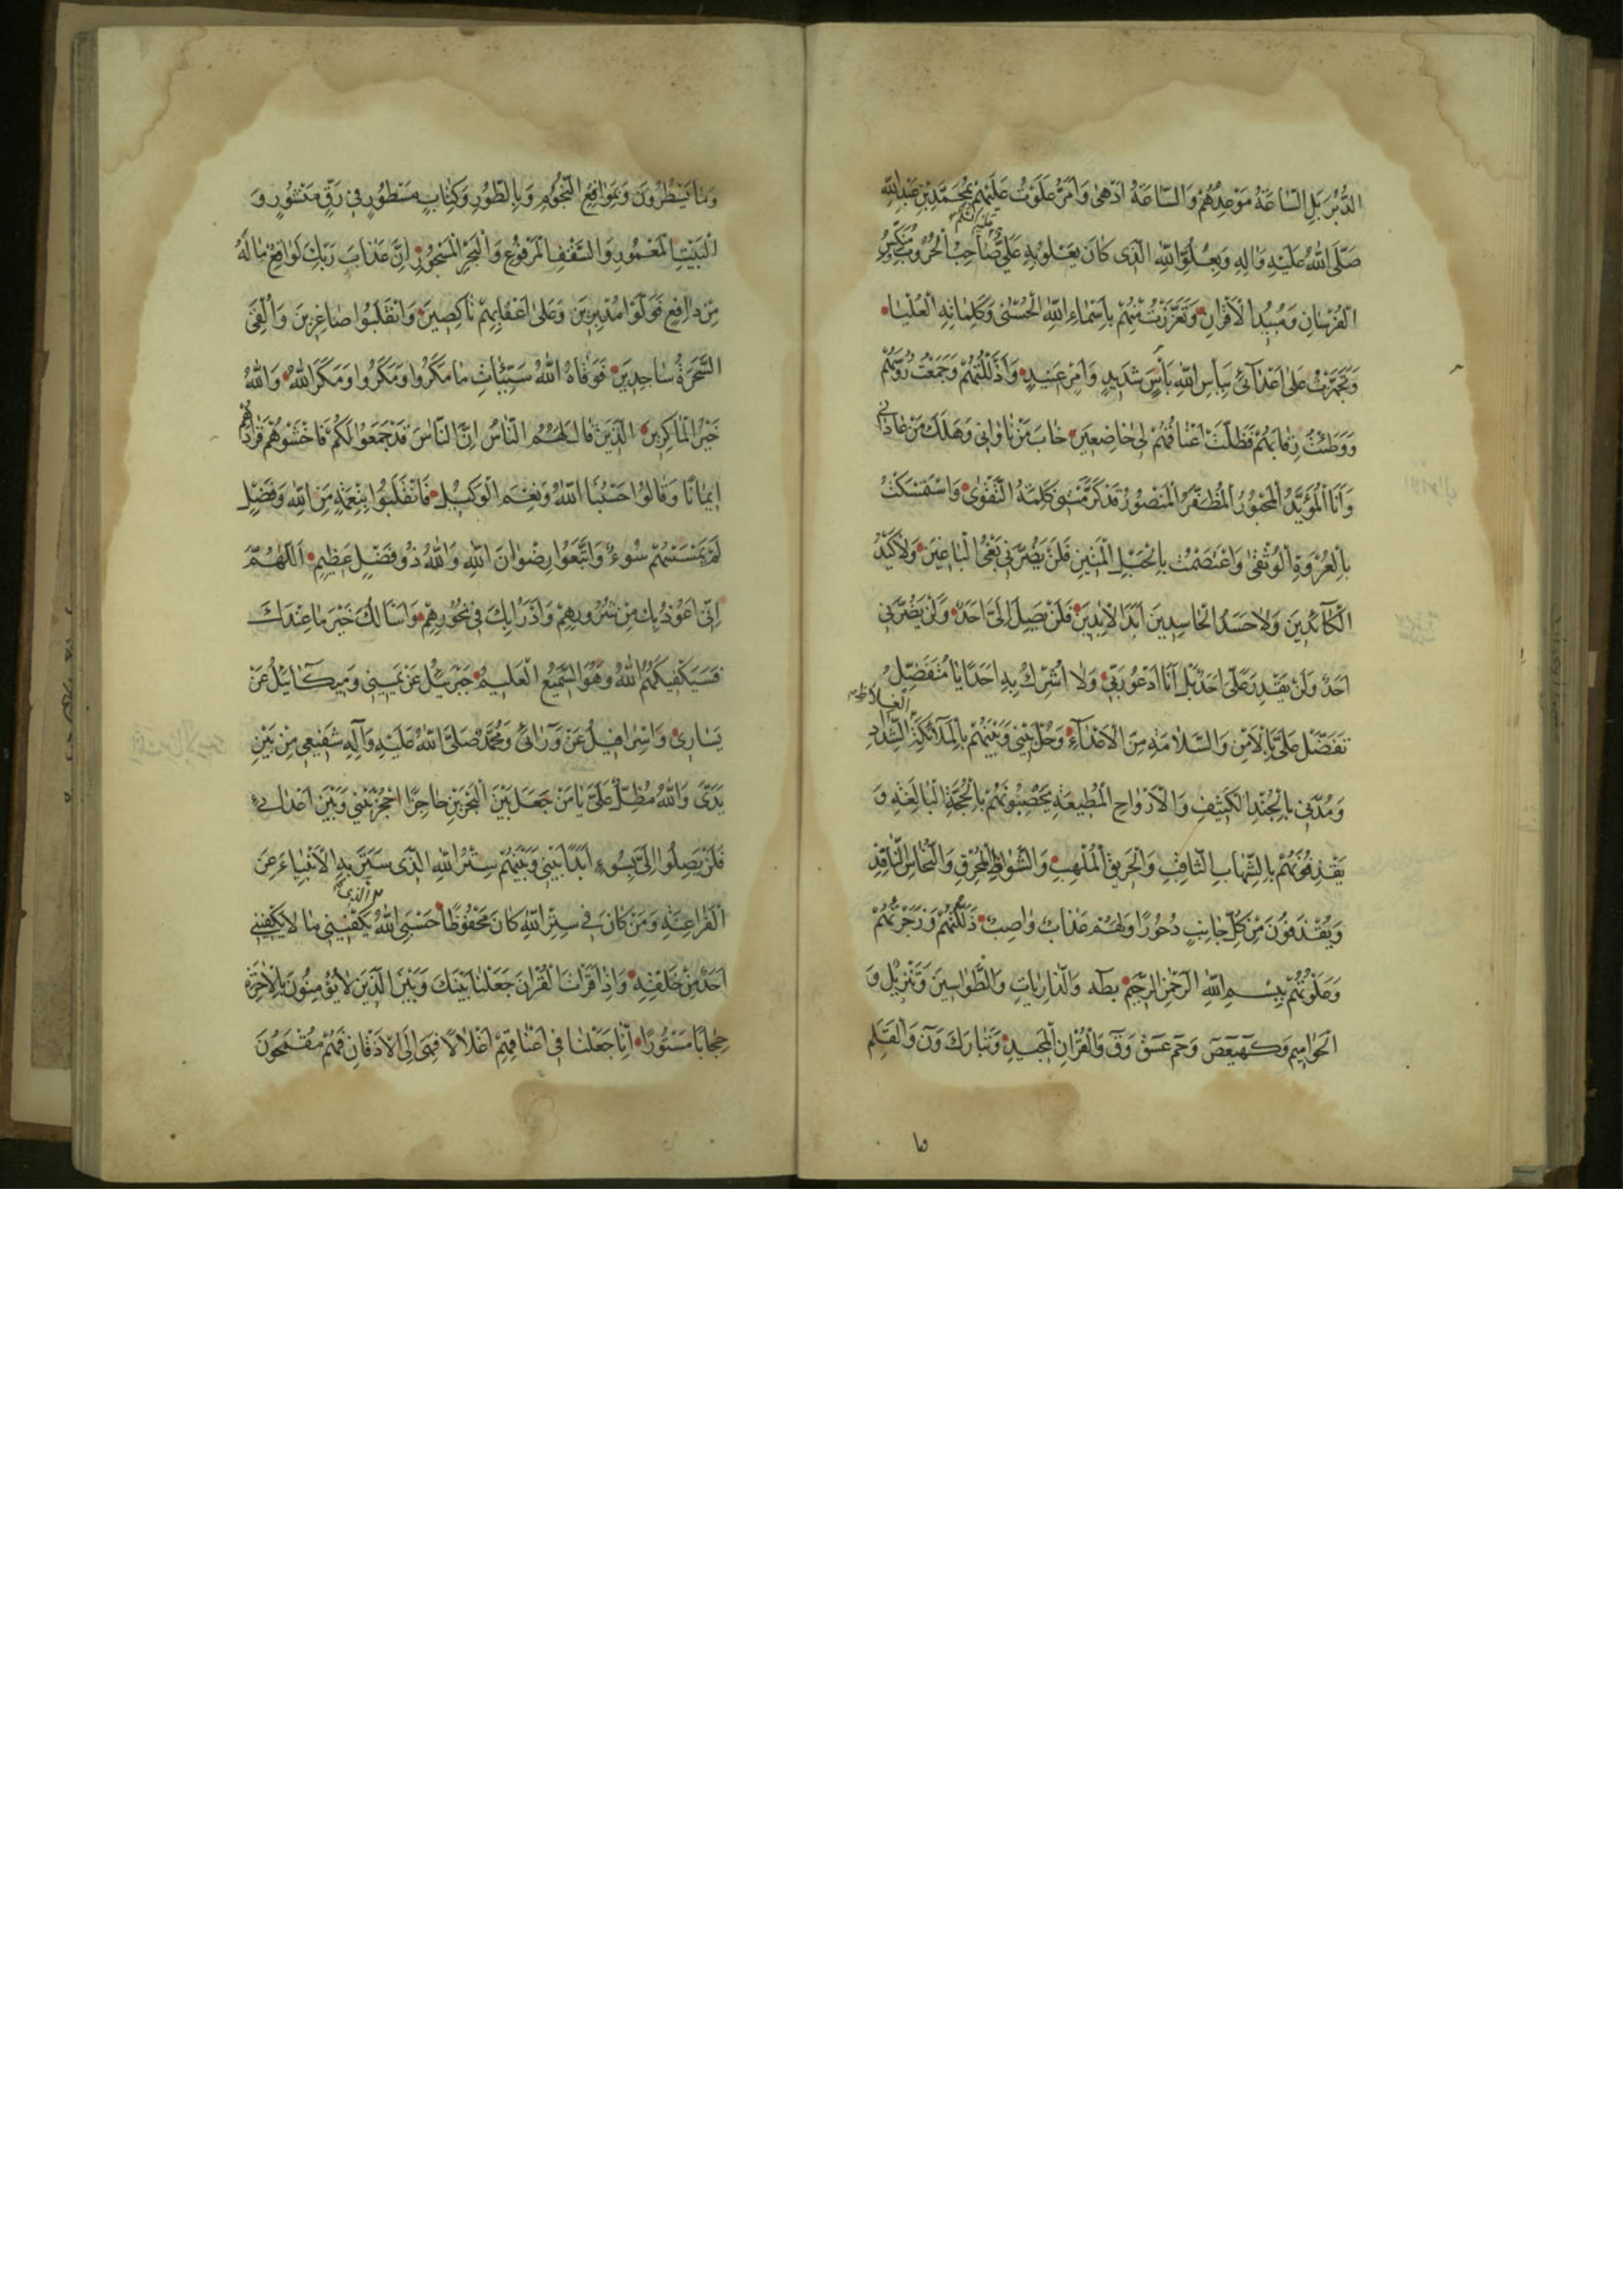 الدُّبُرَ بَلِ السَّاعَةُ مَوْعِدُهُمْ وَالسَّاعَةُ اَدْهىٰ وَاَمَرُّ عَلَوْتُ عَلَيْهِمْ بِمُحَمَّدِ بْنِ عَبْدِ اللّٰهِ
صَلَّى اللّٰهُ عَلَيْهِ وَالِهِ وَبِعُلُوِّ اللّٰهِ الَّذى كَانَ يَعْلُو بِهِ عَلِيٌّ صَاحِبُ الْحُرُوبِ مُنَكِّسُ
الْفُرْسَانِ وَمُبِيدُ الْاَقْرَانِ وَتَعَزَّزْتُ مِنْهُمْ بِاَسْمَاءِ اللّٰهِ الْحُسْنىٰ وَكَلِمَاتِهِ الْعُلْيَا
وَتَجَهَّرْتُ عَلىٰ اَعْدَآئى بِبَأْسِ اللّٰهِ بَأْسٍ شَدِيدٍ وَاَمْرٍ عَتِيدٍ وَاَذْلَلْتُهُمْ وَجَمَعْتُ رُؤُسَهُمْ
وَوَطِئْتُ رِقَابَهُمْ فَظَلَّتْ اَعْنَاقُهُمْ لى خَاضِعِينَ خَابَ مَنْ نَاوَانى وَهَلَكَ مَنْ عَادَانى
وَاَنَا الْمُؤَيَّدُ الْمَحْبُورُ الْمُظَفَّرُ الْمَنْصُورُ قَدْ كَرَّمَتْنِى كَلِمَةُ التَّقْوىٰ وَاسْتَمْسَكْتُ
بِالْعُرْوَةِ الْوُثْقىٰ وَاعْتَصَمْتُ بِالْحَبْلِ الْمَتِينِ فَلَنْ يَضُرَّنى بَغْىُ الْبَاغِينَ وَلَا كَيْدُ
الْكَآئِدِينَ وَلَا حَسَدُ الْحَاسِدِينَ اَبَدَ الْاٰبِدِينَ فَلَنْ يَصِلَ اِلَىَّ اَحَدٌ وَلَنْ يَضُرَّنى
اَحَدٌ وَلَنْ يَقْدِرَ عَلَىَّ اَحَدٌ بَلْ اَنَا اَدْعُو رَبّى وَلَا اُشْرِكُ بِهِ اَحَدًا يَا مُتَفَضِّلُ
تَفَضَّلْ عَلَىَّ بِالْاَمْنِ وَالسَّلَامَةِ مِنَ الْاَعْدَآءِ وَحُلْ بَيْنى وَبَيْنَهُمْ بِالْمَلَآئِكَةِ الْغِلَاظِ الشِّدَادِ
وَمُدَّنى بِالْجُنْدِ الْكَثِيفِ وَالْاَرْوَاحِ الْمُطِيعَةِ يَحْصِبُونَهُمْ بِالْحُجَّةِ الْبَالِغَةِ وَ
يَقْذِفُونَهُمْ بِالشِّهَابِ الثَّاقِبِ وَالْحَرِيقِ الْمُلْهِبِ وَالشُّوَاظِ الْمُحْرِقِ وَالنُّحَاسِ النَّافِذِ
وَيُقْذَفُونَ مِنْ كُلِّ جَانِبٍ دُحُورًا وَلَهُمْ عَذَابٌ وَاصِبٌ ذَلَّلْتُهُمْ وَزَجَرْتُهُمْ
وَعَلَوْتُهُمْ بِبِسْمِ اللّٰهِ الرَّحْمٰنِ الرَّحِيمِ بِطٰه وَالذَّارِيَاتِ وَالطَّوَاسِينَ وَتَنْزِيلِ وَ
الْحَوَامِيمِ وَكٓهٰيٰعٓصٓ وَحٰمٓ عٓسٓقٓ وَقٓ وَالْقُرْاٰنِ الْمَجِيدِ وَتَبَارَكَ وَنٓ وَالْقَلَمِ
وما
وَمَا يَسْطُرُونَ وَبِمَوَاقِعِ النُّجُومِ وَبِالطُّورِ وَكِتَابٍ مَسْطُورٍ فى رَقٍّ مَنْشُورٍ وَ
الْبَيْتِ الْمَعْمُورِ وَالسَّقْفِ الْمَرْفُوعِ وَالْبَحْرِ الْمَسْجُورِ اِنَّ عَذَابَ رَبِّكَ لَوَاقِعٌ مَا لَهُ
مِنْ دَافِعٍ فَوَلَّوْا مُدْبِرِينَ وَعَلىٰ اَعْقَابِهِمْ نَاكِصِينَ وَانْقَلَبُوا صَاغِرِينَ وَاُلْقِىَ
السَّحَرَةُ سَاجِدِينَ فَوَقَاهُ اللّٰهُ سَيِّئَاتِ مَا مَكَرُوا وَمَكَرُوا وَمَكَرَ اللّٰهُ وَاللّٰهُ
خَيْرُ الْمَاكِرِينَ الَّذِينَ قَالَ لَهُمُ النَّاسُ اِنَّ النَّاسَ قَدْ جَمَعُوا لَكُمْ فَاخْشَوْهُمْ فَزَادَهُمْ
اِيمَانًا وَقَالُوا حَسْبُنَا اللّٰهُ وَنِعْمَ الْوَكِيلُ فَانْقَلَبُوا بِنِعْمَةٍ مِنَ اللّٰهِ وَفَضْلٍ
لَمْ يَمْسَسْهُمْ سُوءٌ وَاتَّبَعُوا رِضْوَانَ اللّٰهِ وَاللّٰهُ ذُو فَضْلٍ عَظِيمٍ اَللّٰهُمَّ
اِنّى اَعُوذُ بِكَ مِنْ شُرُورِهِمْ وَاَدْرَأُ بِكَ فى نُحُورِهِمْ وَاَسْاَلُكَ خَيْرَ مَا عِنْدَكَ
فَسَيَكْفِيكَهُمُ اللّٰهُ وَهُوَ السَّمِيعُ الْعَلِيمُ جَبْرَئِيلُ عَنْ يَمِينى وَمِيكَآئِيلُ عَنْ
يَسَارى وَاِسْرَافِيلُ عَنْ وَرَآئى وَمُحَمَّدٌ صَلَّى اللّٰهُ عَلَيْهِ وَآلِهِ شَفِيعى مِنْ بَيْنِ
يَدَىَّ وَاللّٰهُ مُظِلٌّ عَلَىَّ يَا مَنْ جَعَلَ بَيْنَ الْبَحْرَيْنِ حَاجِزًا احْجُزْ بَيْنى وَبَيْنَ اَعْدَائى
فَلَنْ يَصِلُوا اِلَىَّ بِسُوءٍ اَبَدًا بَيْنى وَبَيْنَهُمْ سِتْرُ اللّٰهِ الَّذى سَتَرَ بِهِ الْاَنْبِيَاءَ عَنِ
الْفَرَاعِنَةِ وَمَنْ كَانَ فى سِتْرِ اللّٰهِ كَانَ مَحْفُوظًا حَسْبِىَ اللّٰهُ الَّذى يَكْفِينى مَا لَا يَكْفِينى
اَحَدٌ مِنْ خَلْقِهِ وَاِذَا قَرَأْتَ الْقُرْاٰنَ جَعَلْنَا بَيْنَكَ وَبَيْنَ الَّذِينَ لَا يُؤْمِنُونَ بِالْاٰخِرَةِ
حِجَابًا مَسْتُورًا اِنَّا جَعَلْنَا فى اَعْنَاقِهِمْ اَغْلَالًا فَهِىَ اِلَى الْاَذْقَانِ فَهُمْ مُقْمَحُونَ